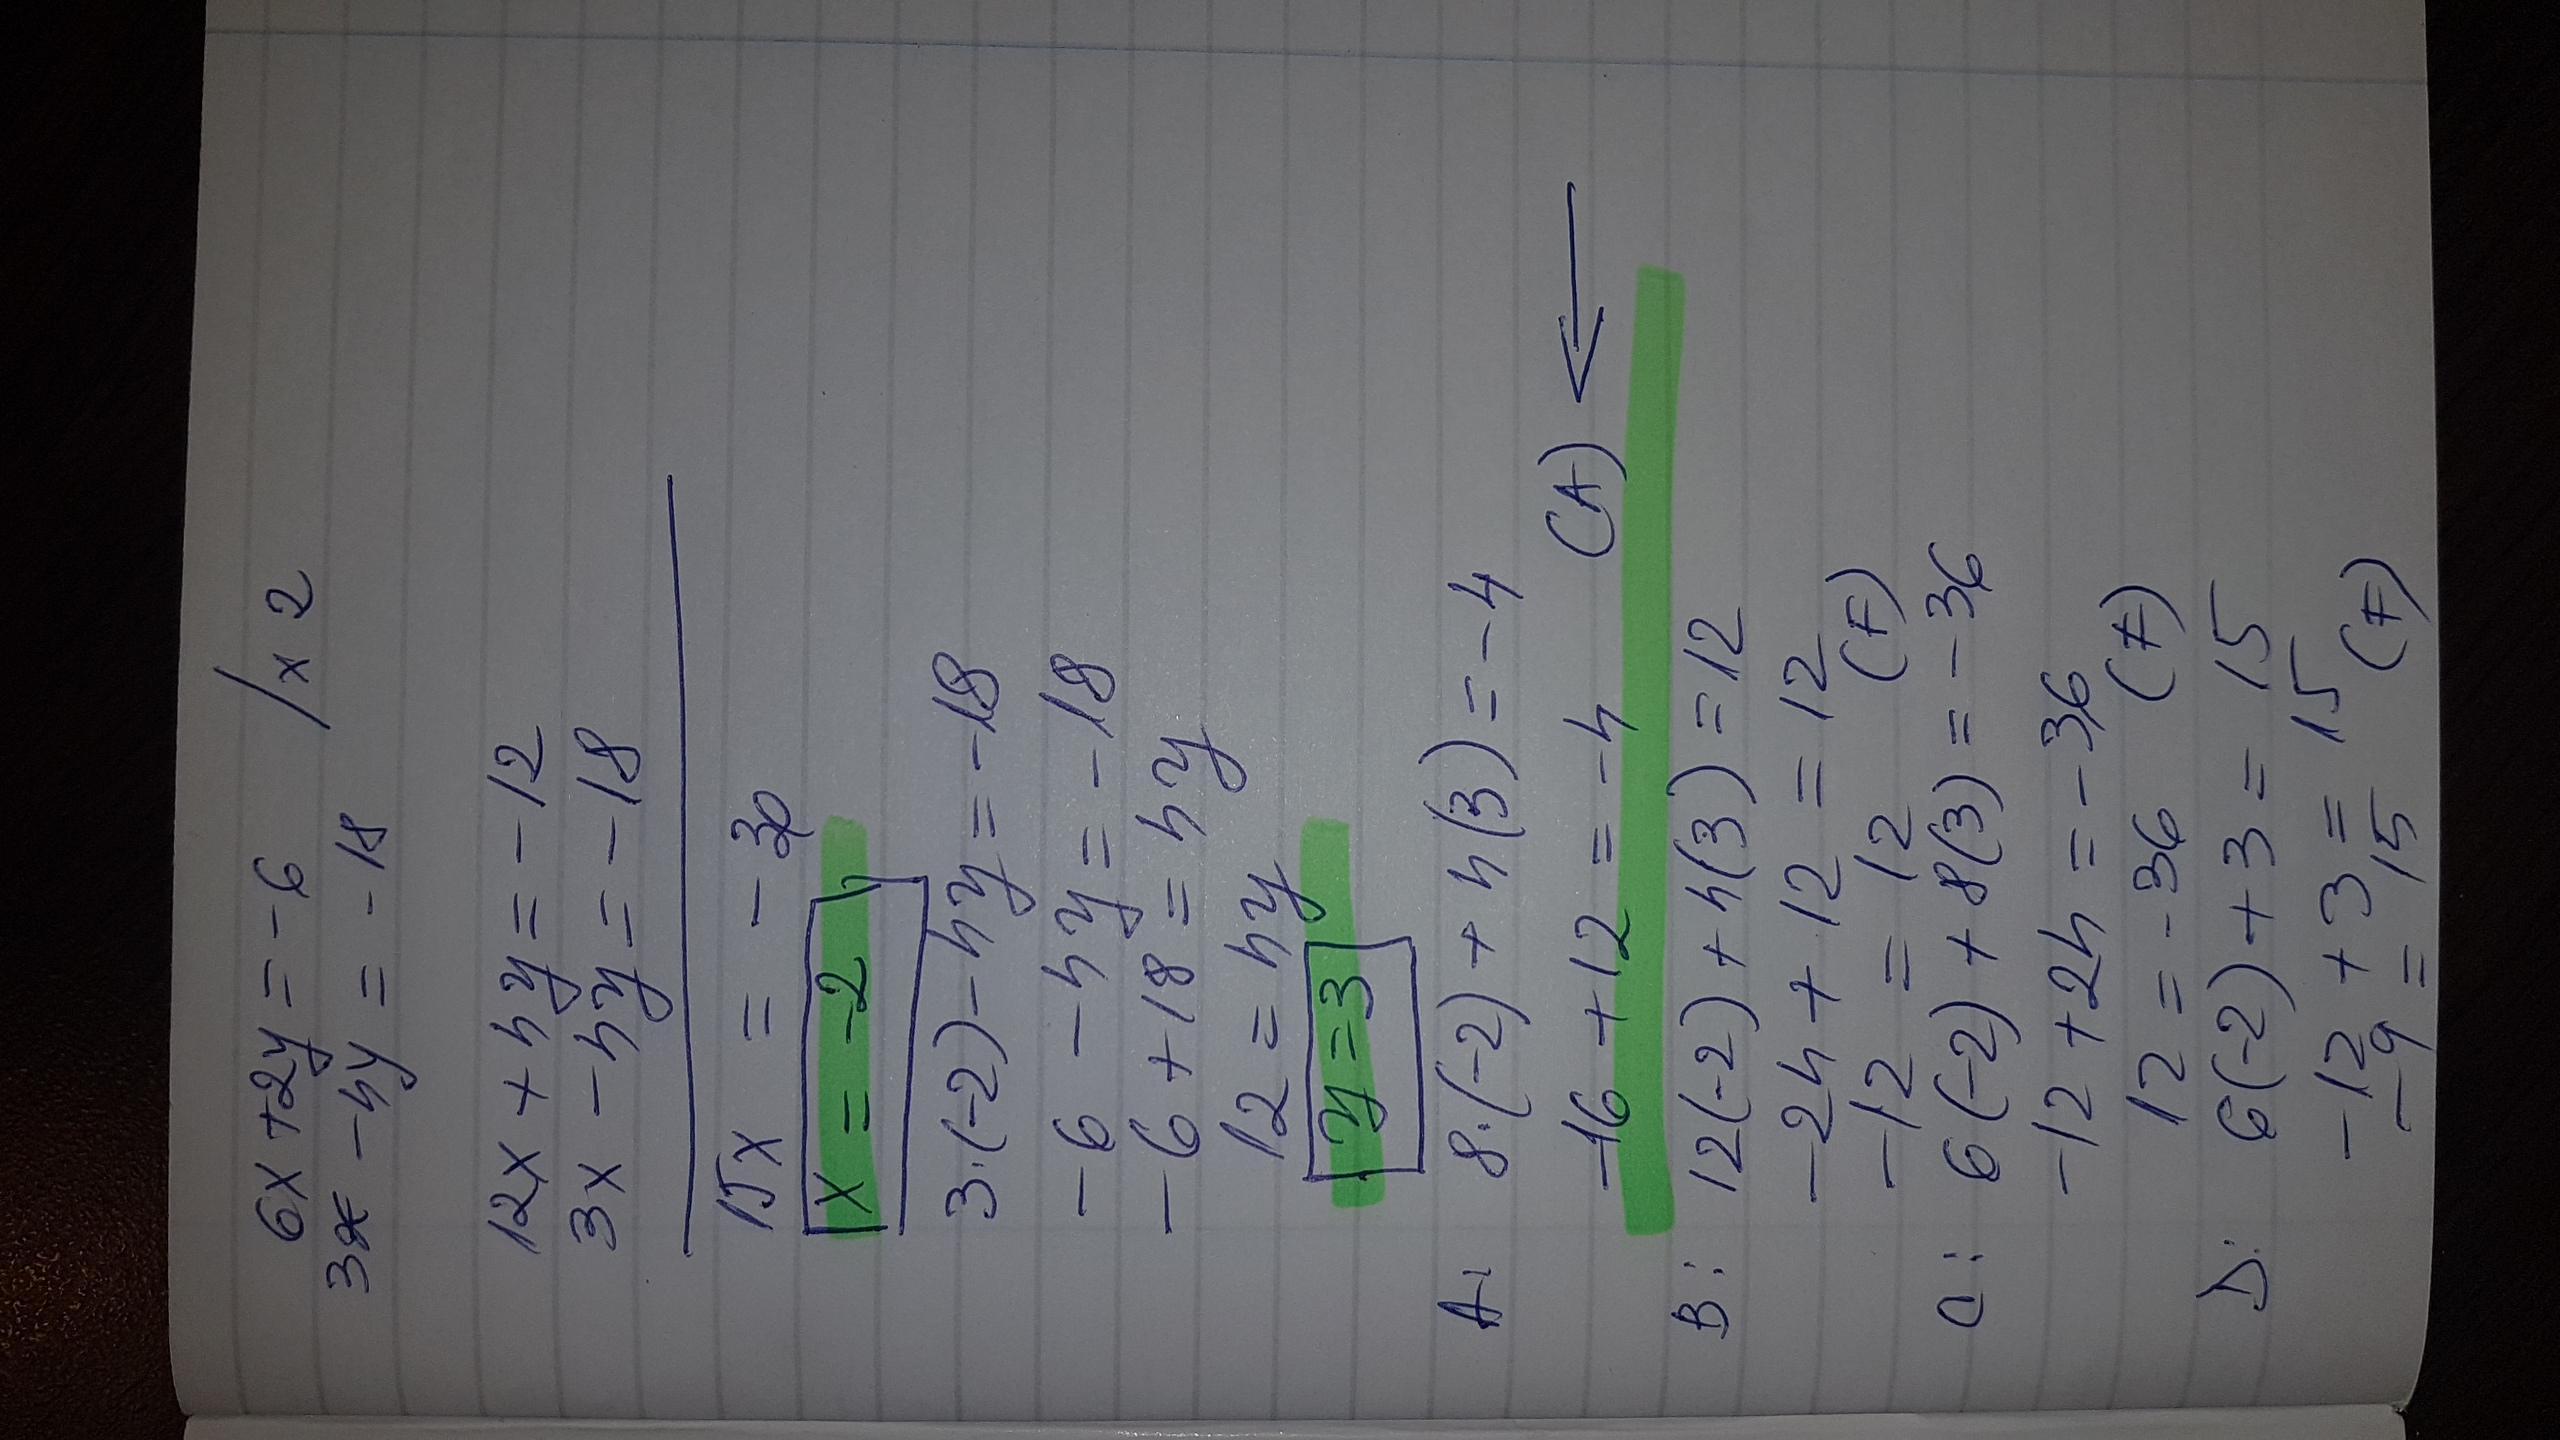 6x+2y=-6 /x2
3x-4y=-18
12x+4y=-12
3x-4y=-18
15x = -30
x=-2
3·(-2)-4y=-18
-6-4y=-18
-6+18=4y
12=4y
y=3
A: 8·(-2)+4(3)=-4
-16+12=-4 (A)
B: 12(-2)+4(3)=12
-24+12=12
-12=12 (F)
C: 6(-2)+8(3)=-36
-12+24=-36
12=-36 (F)
D: 6(-2)+3=15
-12+3=15
-9=15 (F)